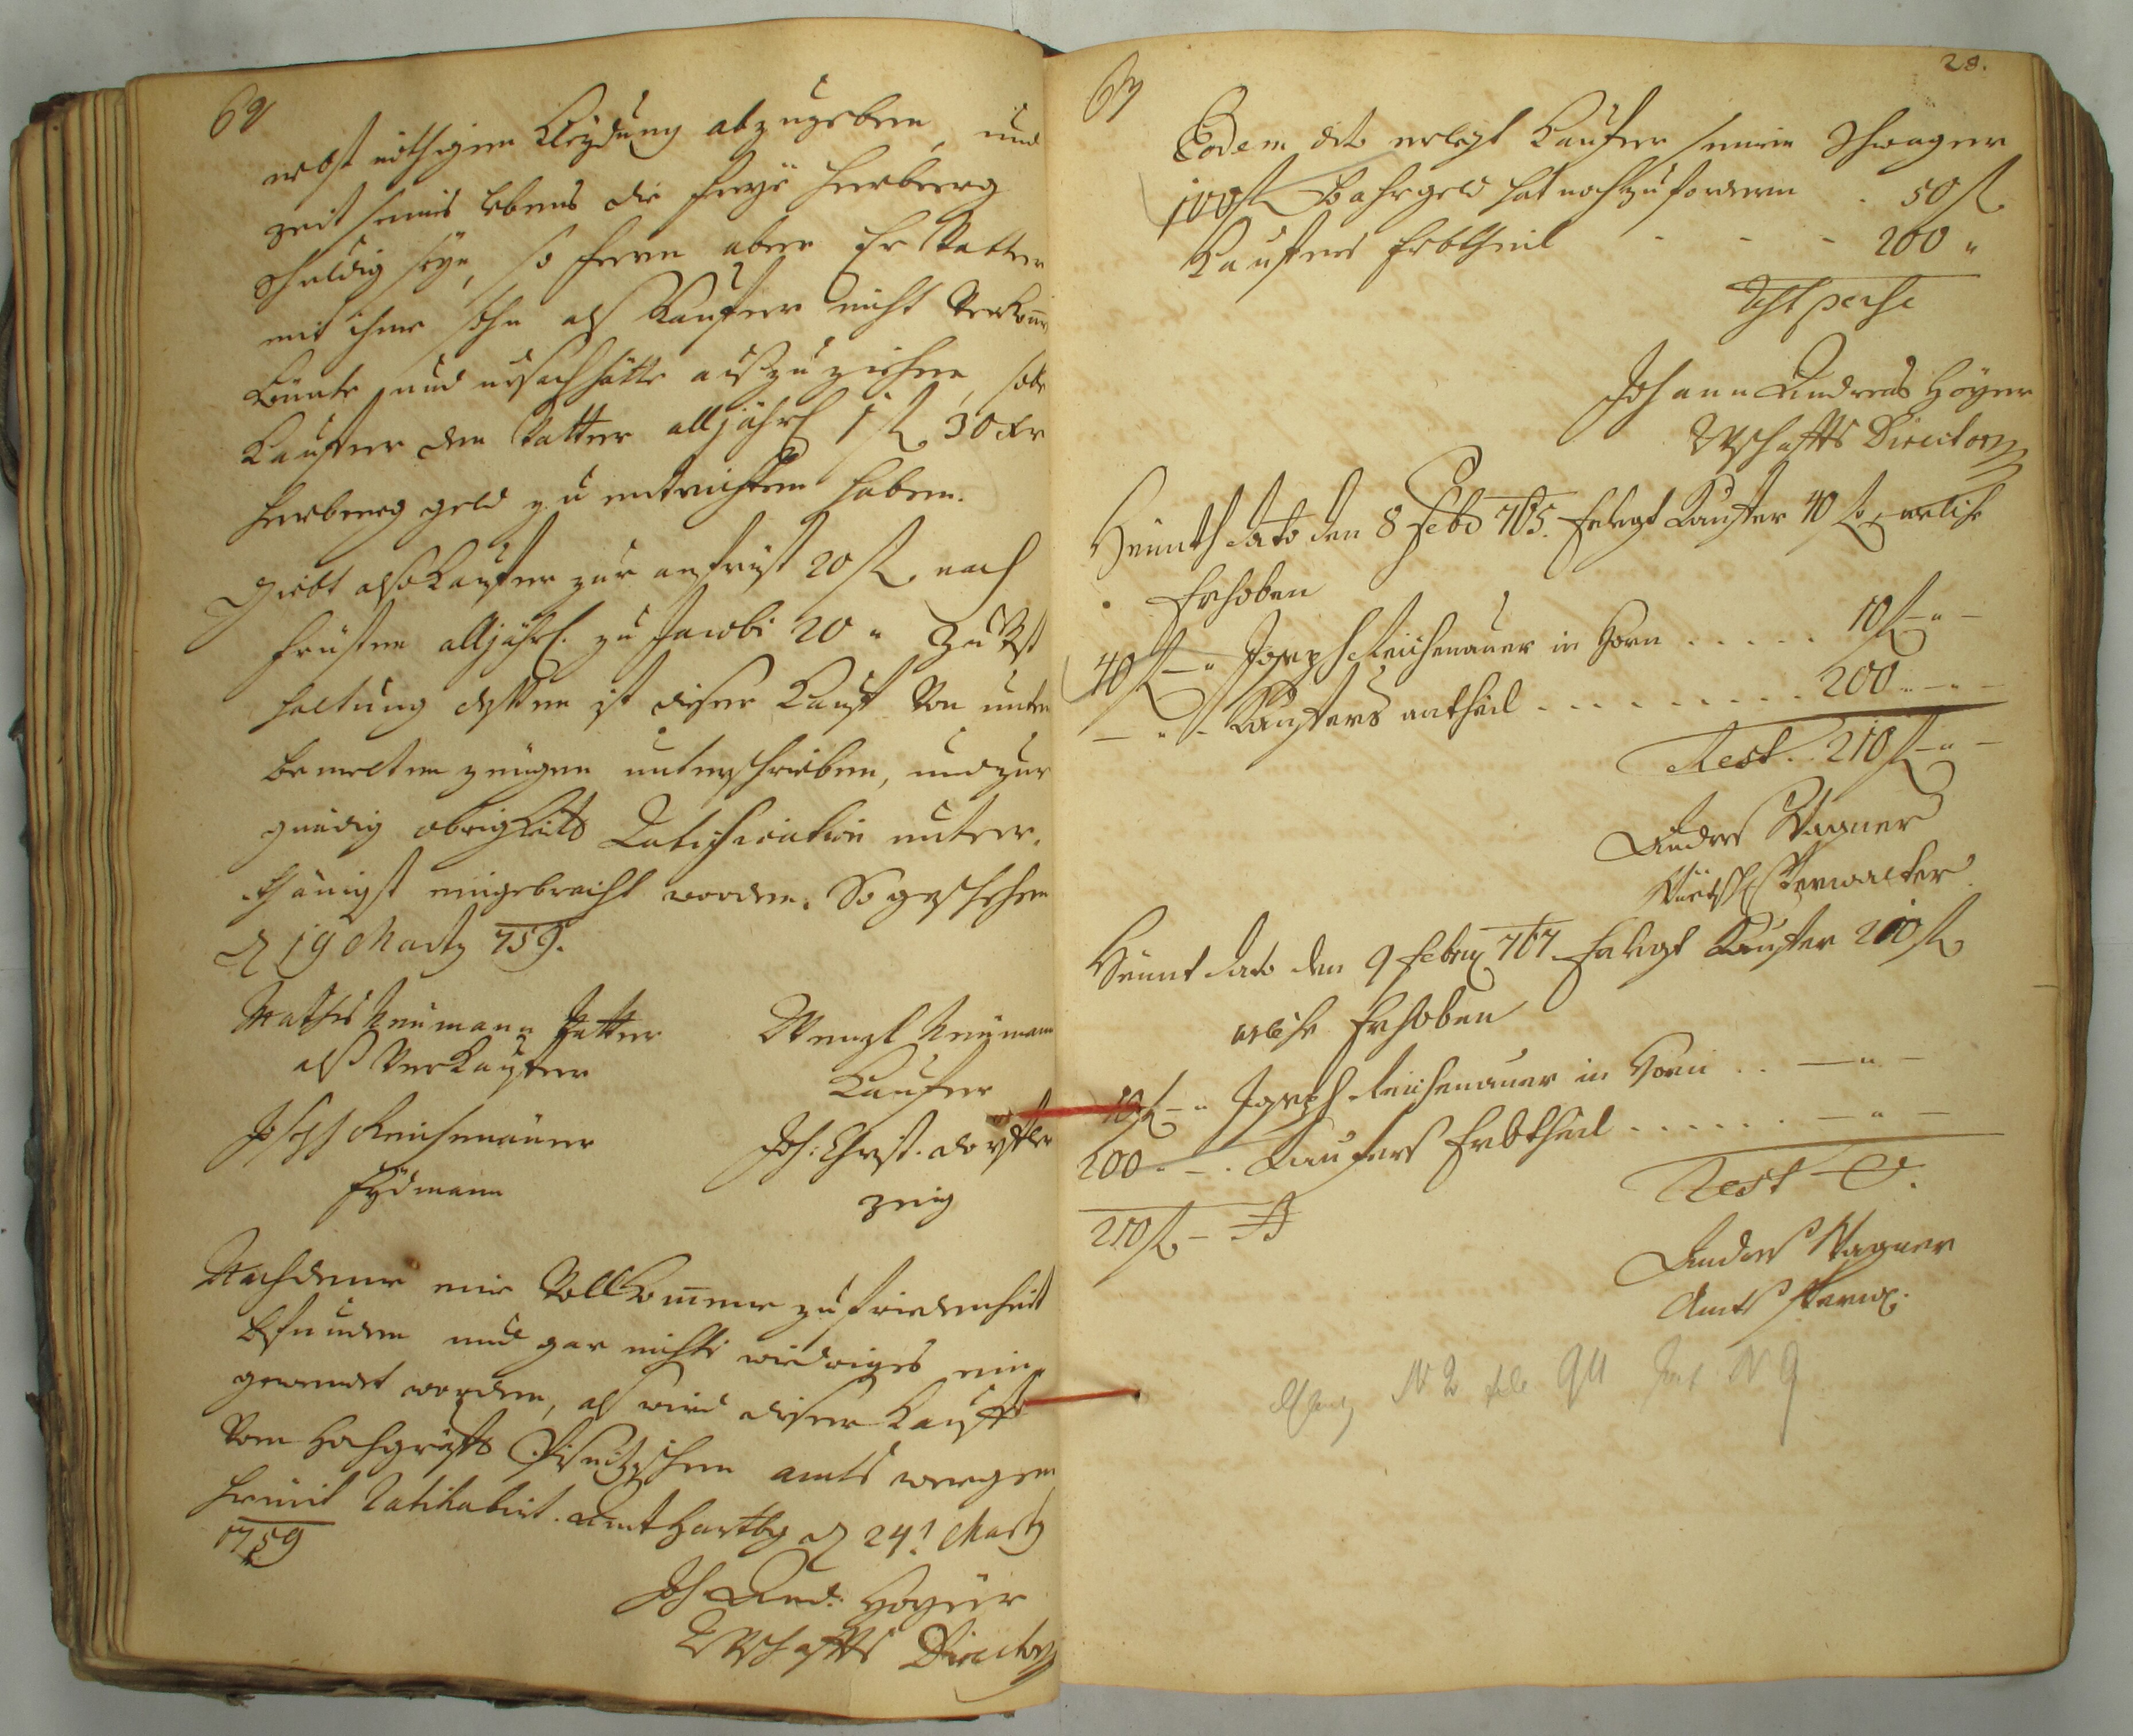 69
nebst nöthigen Kleydung abzugeben, und
zeit seines lebens die freye herberg
schuldig seyn, so fern aber Er Vatter
mit ihme sohn als Kauffer nicht Verkom̅en
könte und ursach hätte auszuziehen, solle
Kauffer dem Vatter alljährl. 1 fl 30 Xr
herberg geld zu entrichten haben.
Giebt also Kauffer zur anfrist 20 fl. nach
fristen alljährl. zu Jacobi 20 " Zu Vest
haltung dessen ist dieser Kauff Von unten
bemelten zeugen unterschrieben, und zur
gnädig obrigkeits Ratification unter,
thänigst eingebracht worden. So geschehen
d 19 Marty 759.
Mathes Neumann Vatter
als Verkauffer
Wenzl Neumann
Kauffer
Joseph Reichenauer
Joh: Christ.
zeig
Nachdeme eine Vollkom̅ene zufriedenheit
befunden und gar nichts wiedriges ein
gewendet worden, als wird dieser Kauff
Von Hochgräffl. amts wegen
hiemit Ratihabirt. Amt d 24! Marty
1759
Joh And: Hoyer
Wschaffts Director
28.
Eodem dato erlegt Kauffer seinem Schwager
100 fl Bahrgeld hat noch zu fordern . 50 fl
Kauffers Erbtheil - - - 200 "
Johann Andreas Hoyer
Wschaffts Director
Heunth dato den 8 Feb 765. Erlegt Kauffer 40 fl welche
Erhoben
40 fl - " Joseph Reichenauer in Horn . . . . . 10 fl - " -
- " - Kauffers antheil . . . . . . . . . 200 " - " -
Rest . . 210 fl - " -
Andres Wagner
Verwalter
Heunt dato den 9 Febry 767 Erlegt Kauffer 210 fl
welche Erhoben
10 fl - " Joseph Reichenauer in Horn . . - " -
200 " - . Kaufers Erbtheil . . . . . . - " -
210 fl -
Rest - 0.
Andres Wagner
Amts Verw.
N 2 fol 94 N 9